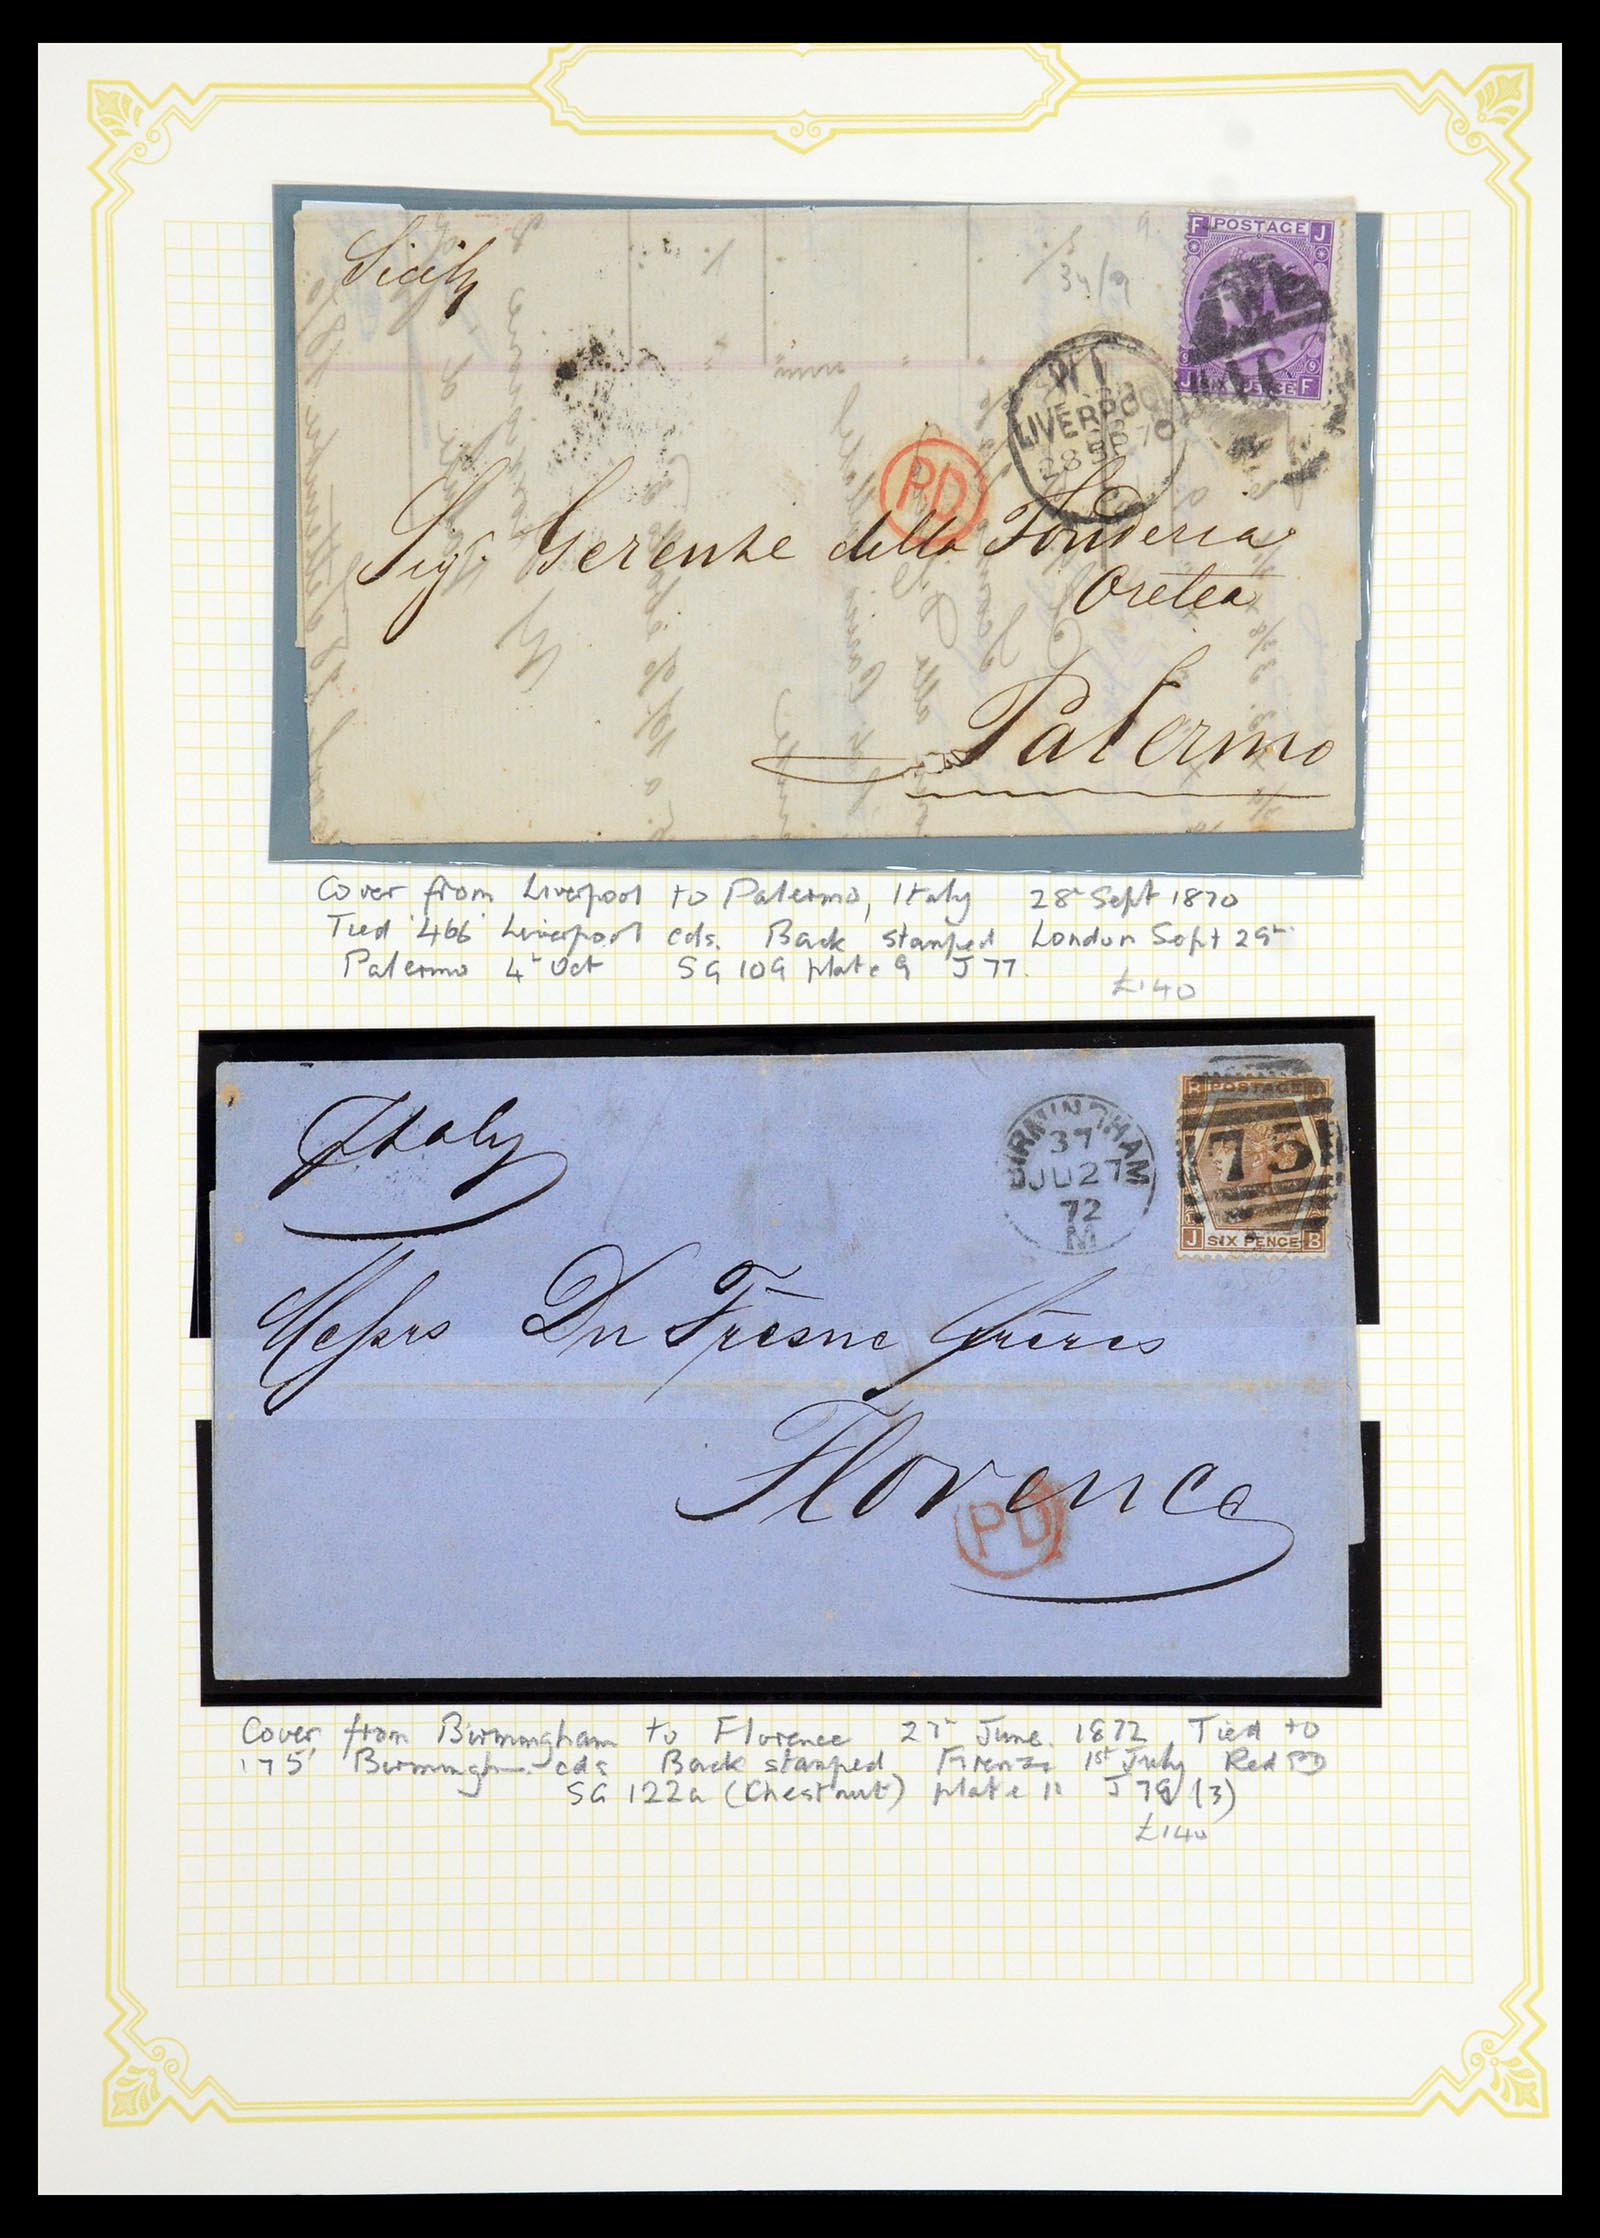 Sicily
34/9
F POSTAGE J
9 9
J SIX PENCE F
LIVERPOOL
28 SP 70
PD
Sigr. Gerente della Fonderia
Oretea
Palermo
Cover from Liverpool to Palermo, Italy 28th Sept 1870
Tied '466' Liverpool cds. Back stamped London Sept 29th
Palermo 4th Oct SG 109 plate 9 J 77.
£140
Italy
BIRMINGHAM
37
JU 27
72
M
B POSTAGE J
75
J SIX PENCE B
Messrs Du Fresne Frères
Florence
PD
Cover from Birmingham to Florence 27th June. 1872 Tied to
'75' Birmingham cds Back stamped Firenze 1st July Red PD
SG 122a (Chestnut) plate 11 J 79 (3)
£140